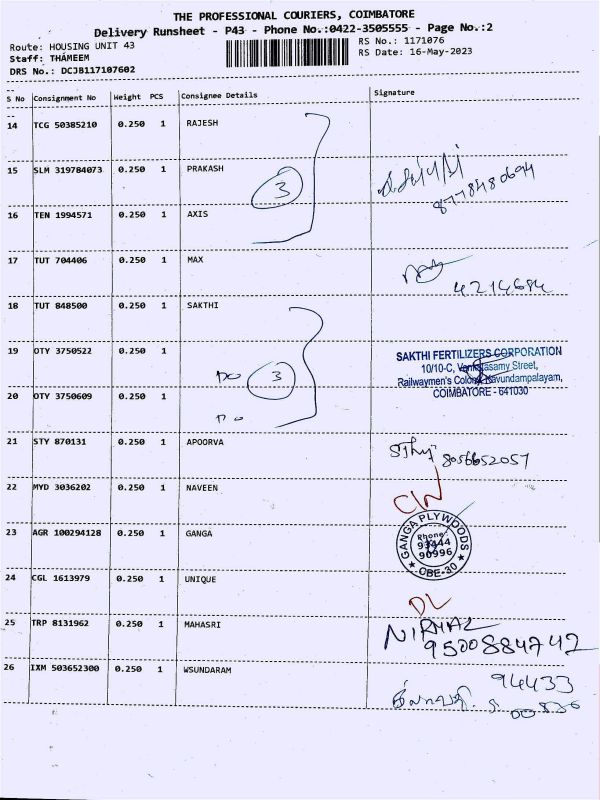 THE PROFESSIONAL COURIERS, COIMBATORE
Delivery Runsheet - P43 - Phone No.:0422-3505555 - Page No.:2
Route: HOUSING UNIT 43 RS No.: 1171076
Staff: THAMEEM RS Date: 16-May-2023
DRS No.: DCJB117107602
S No Consignment No Weight PCS Consignee Details Signature
14 TCG 50385210 0.250 1 RAJESH
15 SLM 319784073 0.250 1 PRAKASH
3
8778480694
16 TEN 1994571 0.250 1 AXIS
17 TUT 704406 0.250 1 MAX
4214684
18 TUT 848500 0.250 1 SAKTHI
19 OTY 3750522 0.250 1
SAKTHI FERTILIZERS CORPORATION
10/10-C, Venkatasamy Street,
Railwaymen's Colony, Kavundampalayam,
COIMBATORE - 641030
Do 3
20 OTY 3750609 0.250 1
Do
21 STY 870131 0.250 1 APOORVA
8056652057
22 MYD 3036202 0.250 1 NAVEEN
23 AGR 100294128 0.250 1 GANGA
GANGA PLYWOODS
Phone:
93444
90996
CBE-30
24 CGL 1613979 0.250 1 UNIQUE
DL
25 TRP 8131962 0.250 1 MAHASRI
NIRMAL
9500884742
26 IXM 503652300 0.250 1 WSUNDARAM
94433
00836